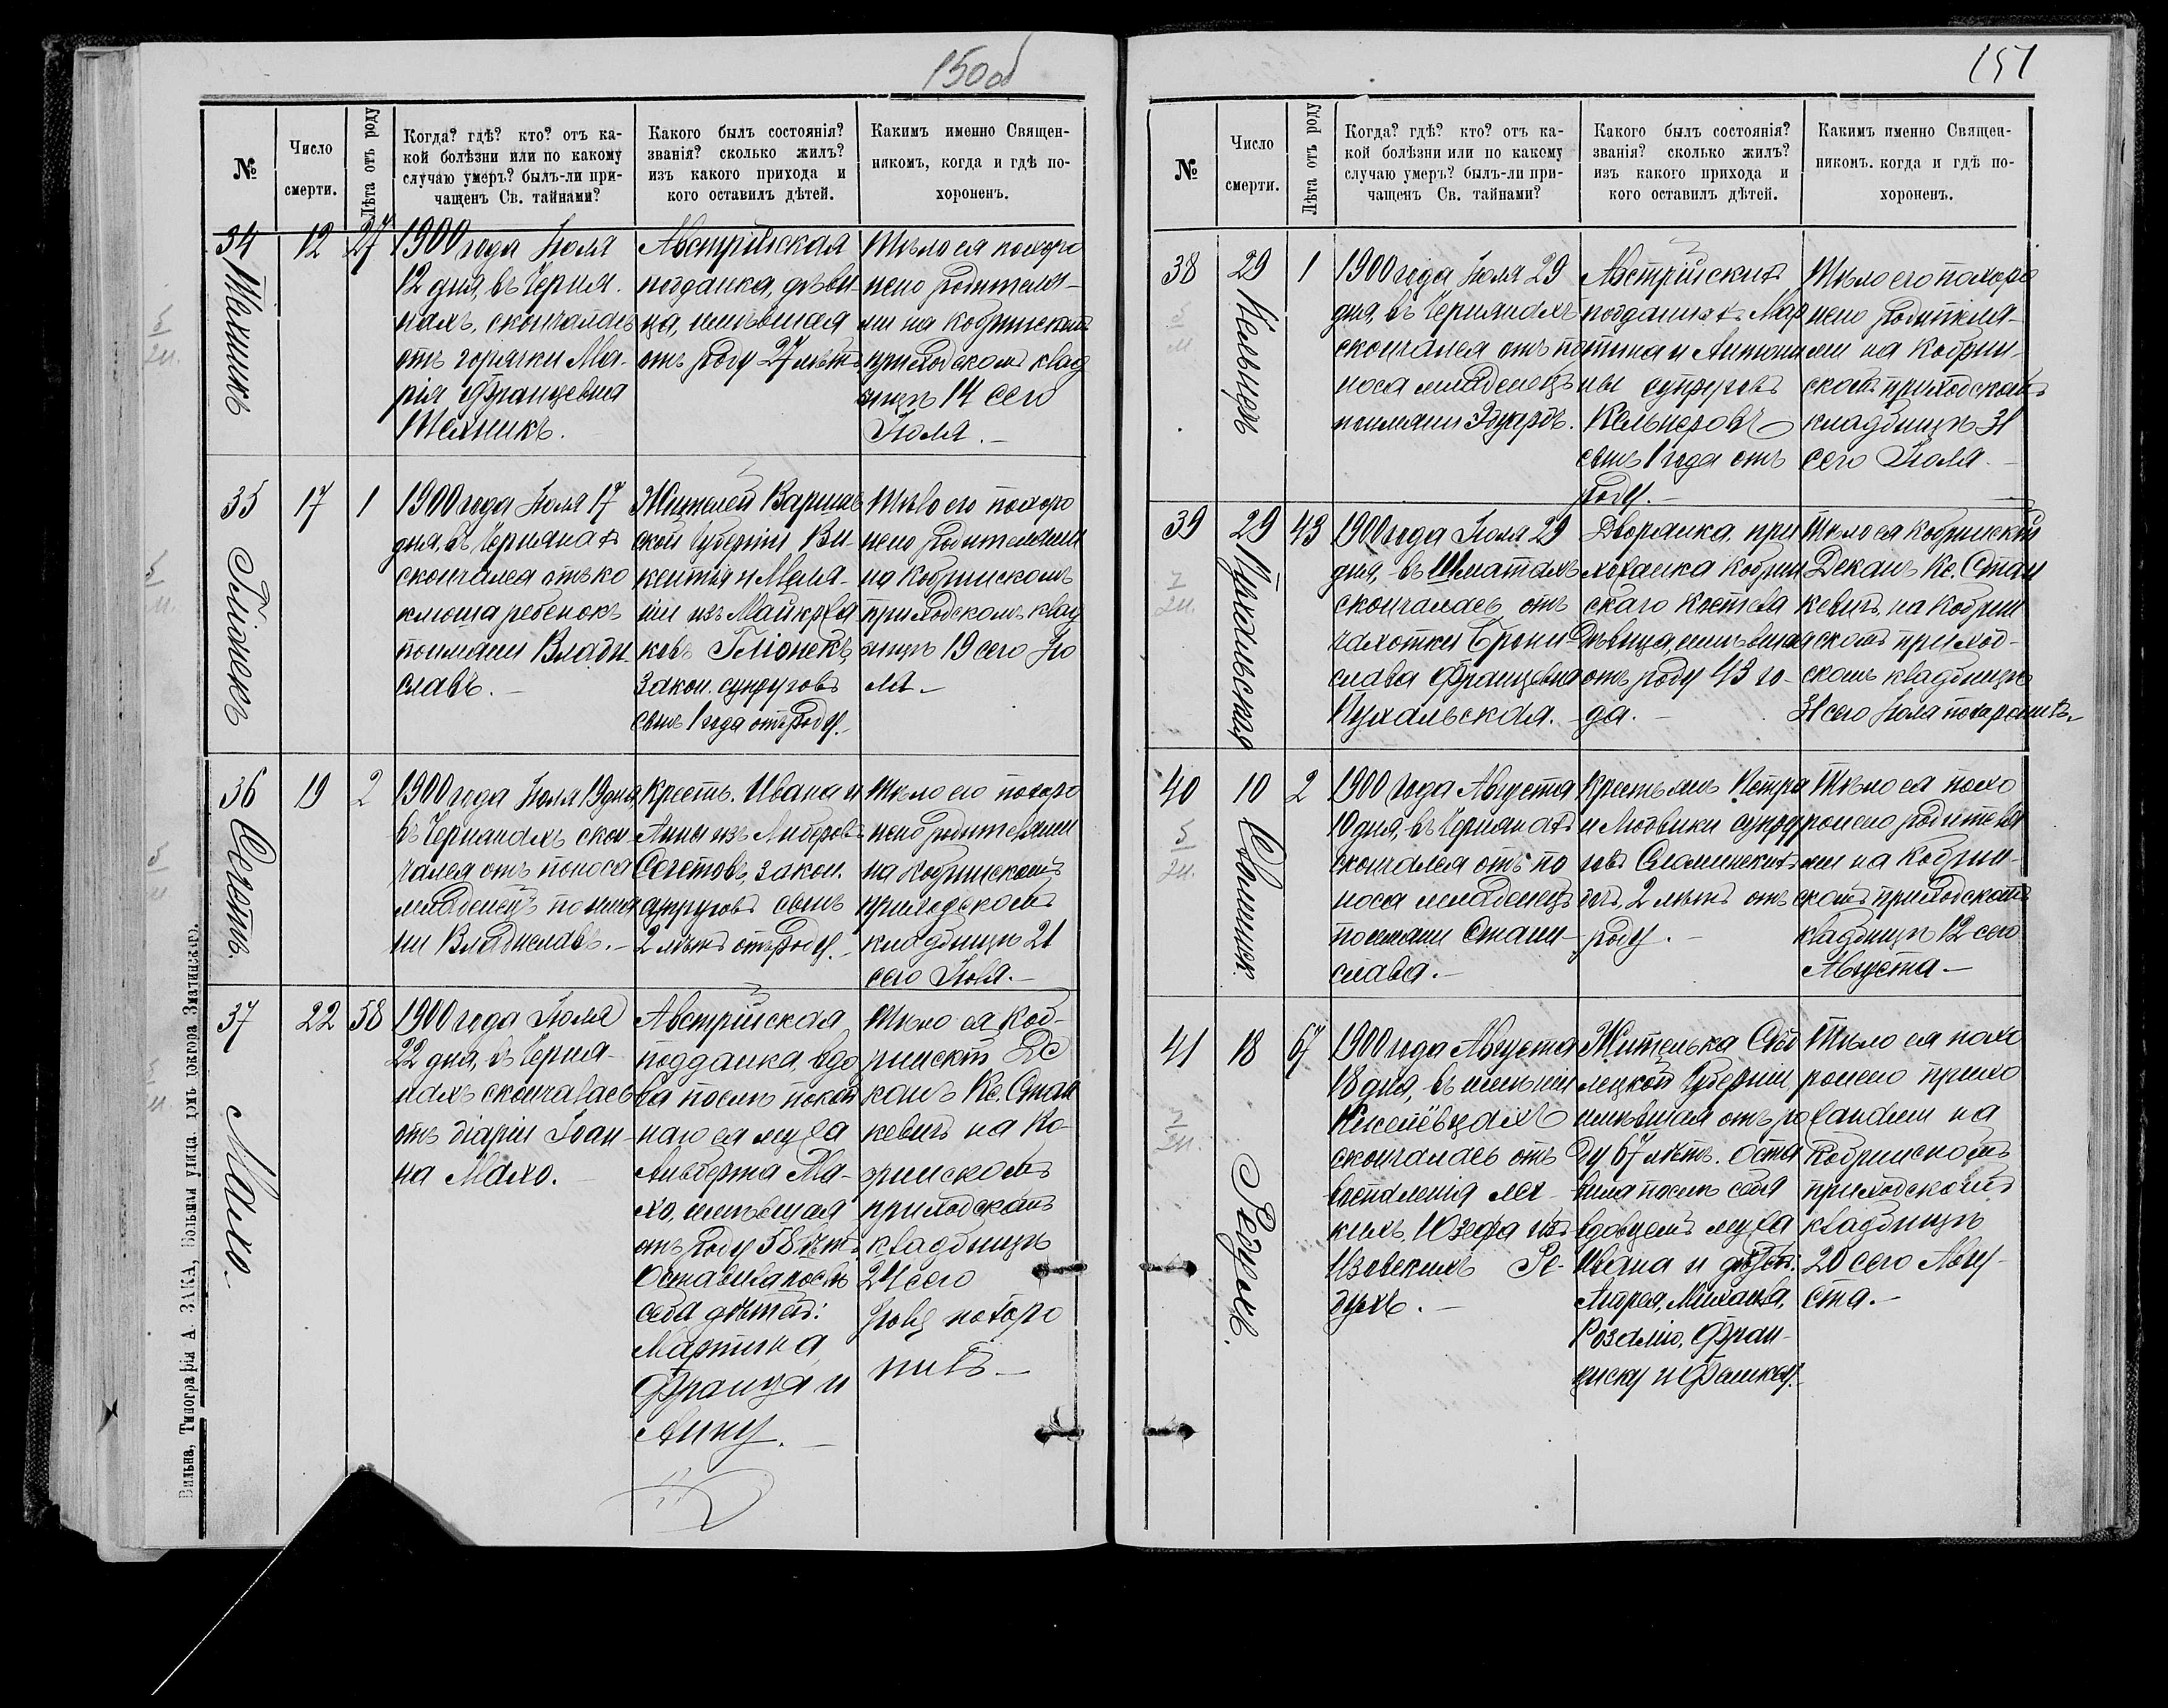 150 об
№
Число
смерти.
Лѣта отъ роду
Когда? гдѣ? кто? отъ ка-
кой болѣзни или по какому
случаю умеръ? былъ-ли при-
чащенъ Св. тайнами?
Какого былъ состоянія?
званія? сколько жилъ?
изъ какого прихода и
кого оставилъ дѣтей.
Какимъ именно Священ-
никомъ, когда и гдѣ по-
хороненъ.
34
12
27
1900 года Іюля
12 дня, въ Черня-
нахъ, скончалась
отъ горячки Ма-
рія Францевна
Австрійская
подданка, дѣви-
ца, имѣвшая
отъ роду 27 лѣтъ
Тѣло ея похоро
нено родителя-
ми на Кобринскомъ
приходскомъ клад
бищѣ 14 сего
Іюля.
35
17
1
1900 года Іюля 17
дня, въ Чернянахъ
скончался отъ ко
клюша ребенокъ
по имени Влади
славъ.
Жителей Варшав
ской губерніи Ви-
кентія и Мела-
ніи изъ
ковъ Гліонекъ,
закон. супруговъ
сынъ 1 года отъ роду.
Тѣло его похоро
нено родителями
на Кобринскомъ
приходскомъ клад
бищѣ 19 сего Ію
ля.
36
19
2
1900 года Іюля 19 дня
въ Чернянахъ скон
чался отъ поноса
младенецъ по име
ни Владиславъ.
Крест. Ивана и
Анны изъ
закон.
супруговъ сынъ
2 лѣтъ отъ роду.
Тѣло его похоро
нено родителями
на Кобринскомъ
приходскомъ
кладбищѣ 21
сего Іюля.
37
Махо.
22
58
1900 года Іюля
22 дня, въ Черня-
нахъ скончалась
отъ діаріи Іоан-
на Махо.
Австрійская
подданка, вдо
ва послѣ покой
наго ея мужа
Альберта Ма-
хо, имѣвшая
отъ роду 58 лѣтъ
Оставила послѣ
себя дѣтей:
Мартина,
Франца и
Анну.
Тѣло ея Коб-
ринскій Де
канъ Кс. Стан
кевичъ на Ко-
бринскомъ
приходскомъ
кладбищѣ
24 сего
Іюля похоро
нилъ.
Вильна, Типографія А. ЗАКА, Большая улица, домъ доктора
151
№
Число
смерти.
Лѣта отъ роду
Когда? гдѣ? кто? отъ ка-
кой болѣзни или по какому
случаю умеръ? былъ-ли при-
чащенъ Св. тайнами?
Какого былъ состоянія?
званія? сколько жилъ?
изъ какого прихода и
кого оставилъ дѣтей.
Какимъ именно Священ-
никомъ. когда и гдѣ по-
хороненъ.
38
29
1
1900 года Іюля 29
дня, въ Чернянахъ
скончался отъ по
носа младенецъ
по имени Эдуардъ.
Австрійскихъ
подданныхъ Мар
тина и Антони
ны супруговъ
Кельнеровъ
сынъ 1 года отъ
роду.
Тѣло его похоро
нено родителя-
ми на Кобрин-
скомъ приходскомъ
кладбищѣ 31
сего Іюля.
39
Пухальская
29
43
1900 года Іюля 29
дня, въ Шматахъ
скончалась отъ
чахотки Брони
слава Францевна
Пухальская.
Дворянка, при
хожанка Кобрин
скаго костела
дѣвица, имѣвшая
отъ роду 43 го-
да.
Тѣло ея Кобринскій
Деканъ Кс. Стан
кевичъ на Кобрин
скомъ приход-
скомъ кладбищѣ
31 сего Іюля похоронилъ.
40
10
2
1900 года Августа
10 дня, въ Чернянахъ
скончался отъ по
носа младенецъ
по имени Стани-
слава.
Крестьянъ Петра
и Людвики супру
говъ Сломинскихъ
дочь, 2 лѣтъ отъ
роду.
Тѣло ея похо
ронено родителя
ми на Кобрин-
скомъ приходскомъ
кладбищѣ 12 сего
Августа.
41
Редухъ.
18
67
1900 года Августа
18 дня, въ имѣніи
Киселёвцахъ
скончалась отъ
воспаленія лег-
кихъ, Юзефа изъ
Ре-
духъ.
Жителька Сѣд
лецкой губерніи,
имѣвшая отъ ро
ду 67 лѣтъ. Оста
вила послѣ себя
вдовцемъ мужа
Ивана и дѣтей:
Андрея, Михаила,
Розалію, Фран-
циску и
Тѣло ея похо
ронено прихо
жанами на
Кобринскомъ
приходскомъ
кладбищѣ
20 сего Авгу-
ста.